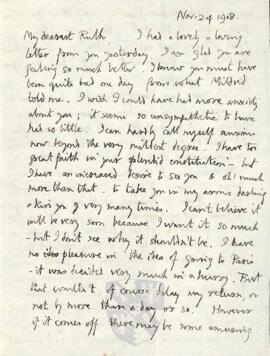 Nov. 24 1918.
My dearest Ruth I had a lovely & loving
letter from you yesterday. I am glad you are
feeling so much better. I know you must have
been quite bad one day from what Mildred
told me. I wish I could have had more anxiety
about you; it seems so unsympathetic to have
had so little. I can hardly call myself anxious
now beyond the very mildest degree. I have too
great faith in your splendid constitution – but
I have an increased desire to see you & oh! much
more than that – to take you in my arms darling
& kiss you very very many times. I can't believe it
will be very soon because I want it so much
– but I don't see why it shouldn't be. I have
no pleasure in the idea of going to Paris
– it was decided very much in a hurry. But
that wouldn't of course delay my return, or
not by more than a day or so. However
if it comes off there may be some amusing